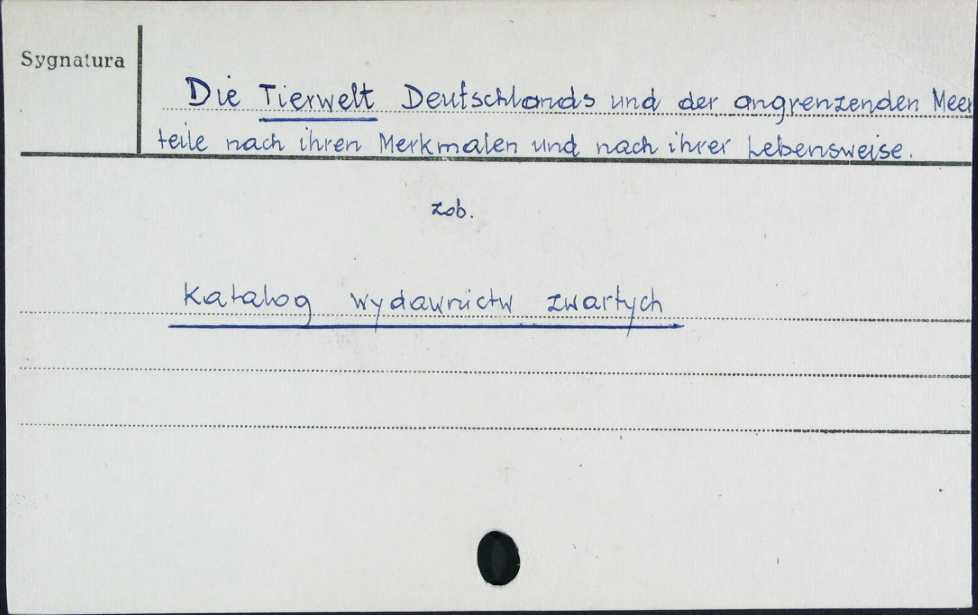 Sygnatura
Die Tierwelt Deutschlands und der angrenzenden Meer
teile nach ihren Merkmalen und nach ihrer Lebensweise.
zob.
Katalog wydawnictw zwartych